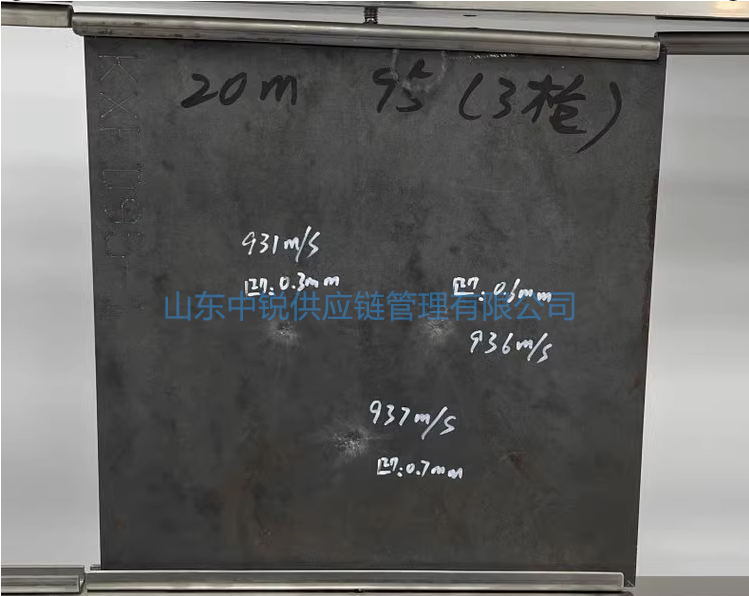 20m 95° (3枪)
931m/s
凹:0.3mm
凹:0.6mm
山东中锐供应链管理有限公司
936m/s
937m/s
凹:0.7mm